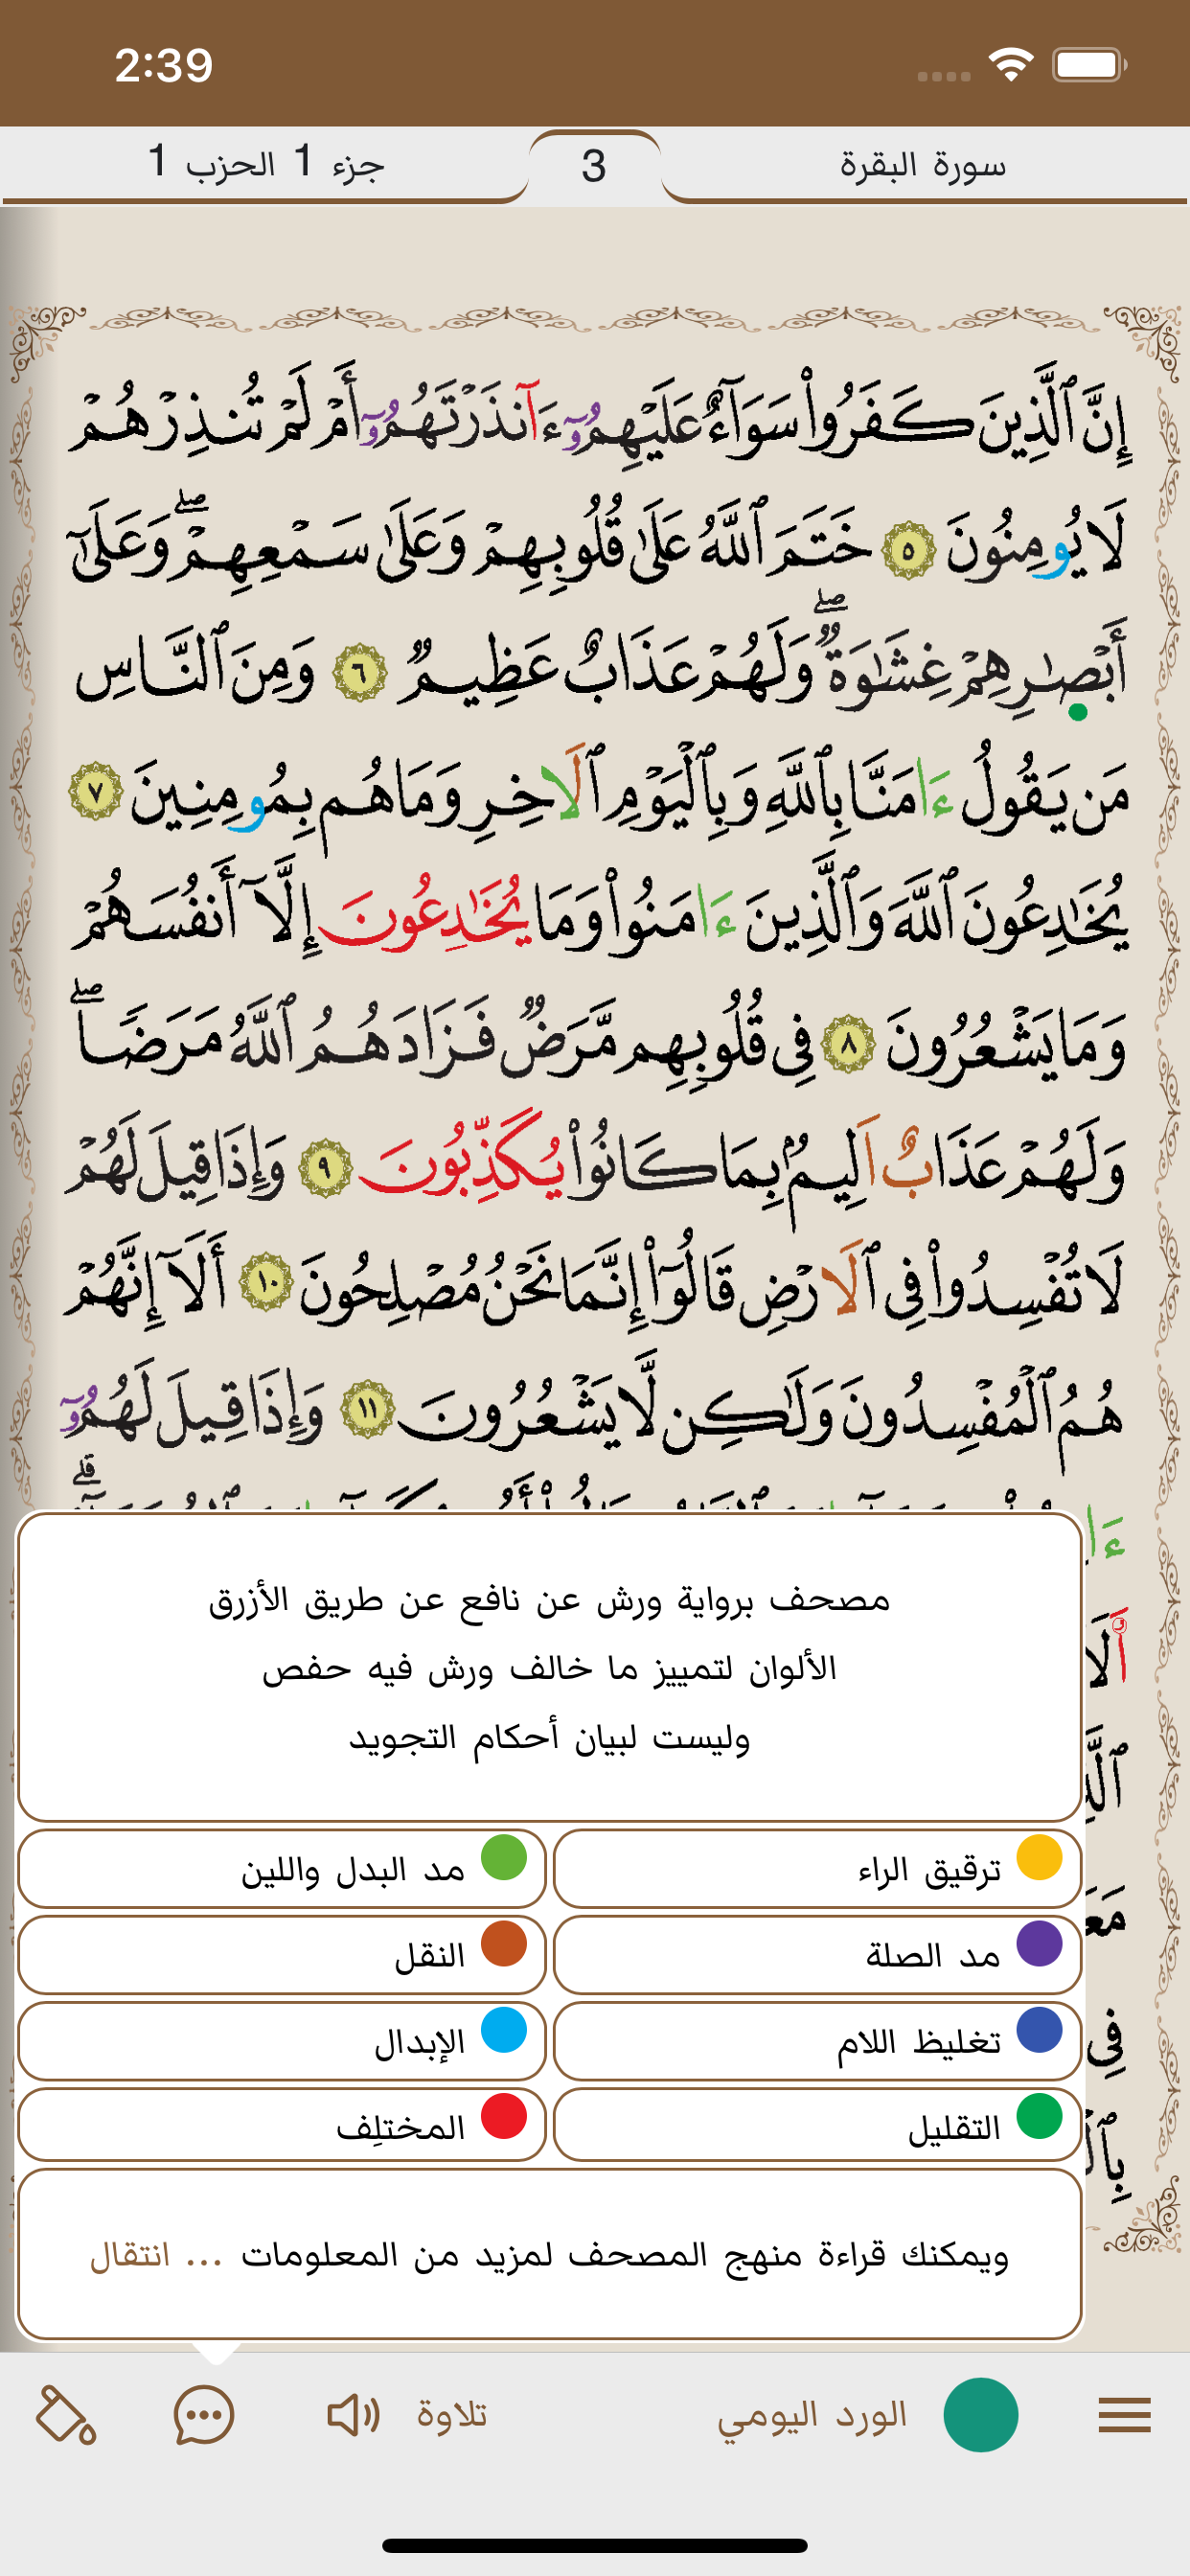 2:39
سورة البقرة
3
جزء 1 الحزب 1
إِنَّ ٱلَّذِينَ كَفَرُوا۟ سَوَآءٌ عَلَيْهِمُۥٓ ءَآنذَرْتَهُمُۥٓ أَمْ لَمْ تُنذِرْهُمْ
لَا يُومِنُونَ ٥ خَتَمَ ٱللَّهُ عَلَىٰ قُلُوبِهِمْ وَعَلَىٰ سَمْعِهِمْۖ وَعَلَىٰٓ
أَبْصَٰرِهِمْ غِشَٰوَةٌۖ وَلَهُمْ عَذَابٌ عَظِيمٌ ٦ وَمِنَ ٱلنَّاسِ
مَن يَقُولُ ءَامَنَّا بِٱللَّهِ وَبِٱلْيَوْمِ ٱلَاخِرِ وَمَا هُم بِمُومِنِينَ ٧
يُخَٰدِعُونَ ٱللَّهَ وَٱلَّذِينَ ءَامَنُوا۟ وَمَا يُخَٰدِعُونَ إِلَّآ أَنفُسَهُمْ
وَمَا يَشْعُرُونَ ٨ فِى قُلُوبِهِم مَّرَضٌ فَزَادَهُمُ ٱللَّهُ مَرَضًاۖ
وَلَهُمْ عَذَابٌ اَلِيمٌۢ بِمَا كَانُوا۟ يُكَذِّبُونَ ٩ وَإِذَا قِيلَ لَهُمْ
لَا تُفْسِدُوا۟ فِى ٱلَارْضِ قَالُوٓا۟ إِنَّمَا نَحْنُ مُصْلِحُونَ ١٠ أَلَآ إِنَّهُمْ
هُمُ ٱلْمُفْسِدُونَ وَلَٰكِن لَّا يَشْعُرُونَ ١١ وَإِذَا قِيلَ لَهُمُۥٓ
مصحف برواية ورش عن نافع عن طريق الأزرق
الألوان لتمييز ما خالف ورش فيه حفص
وليست لبيان أحكام التجويد
ترقيق الراء
مد البدل واللين
مد الصلة
النقل
تغليظ اللام
الإبدال
التقليل
المختلِف
ويمكنك قراءة منهج المصحف لمزيد من المعلومات ... انتقال
الورد اليومي
تلاوة